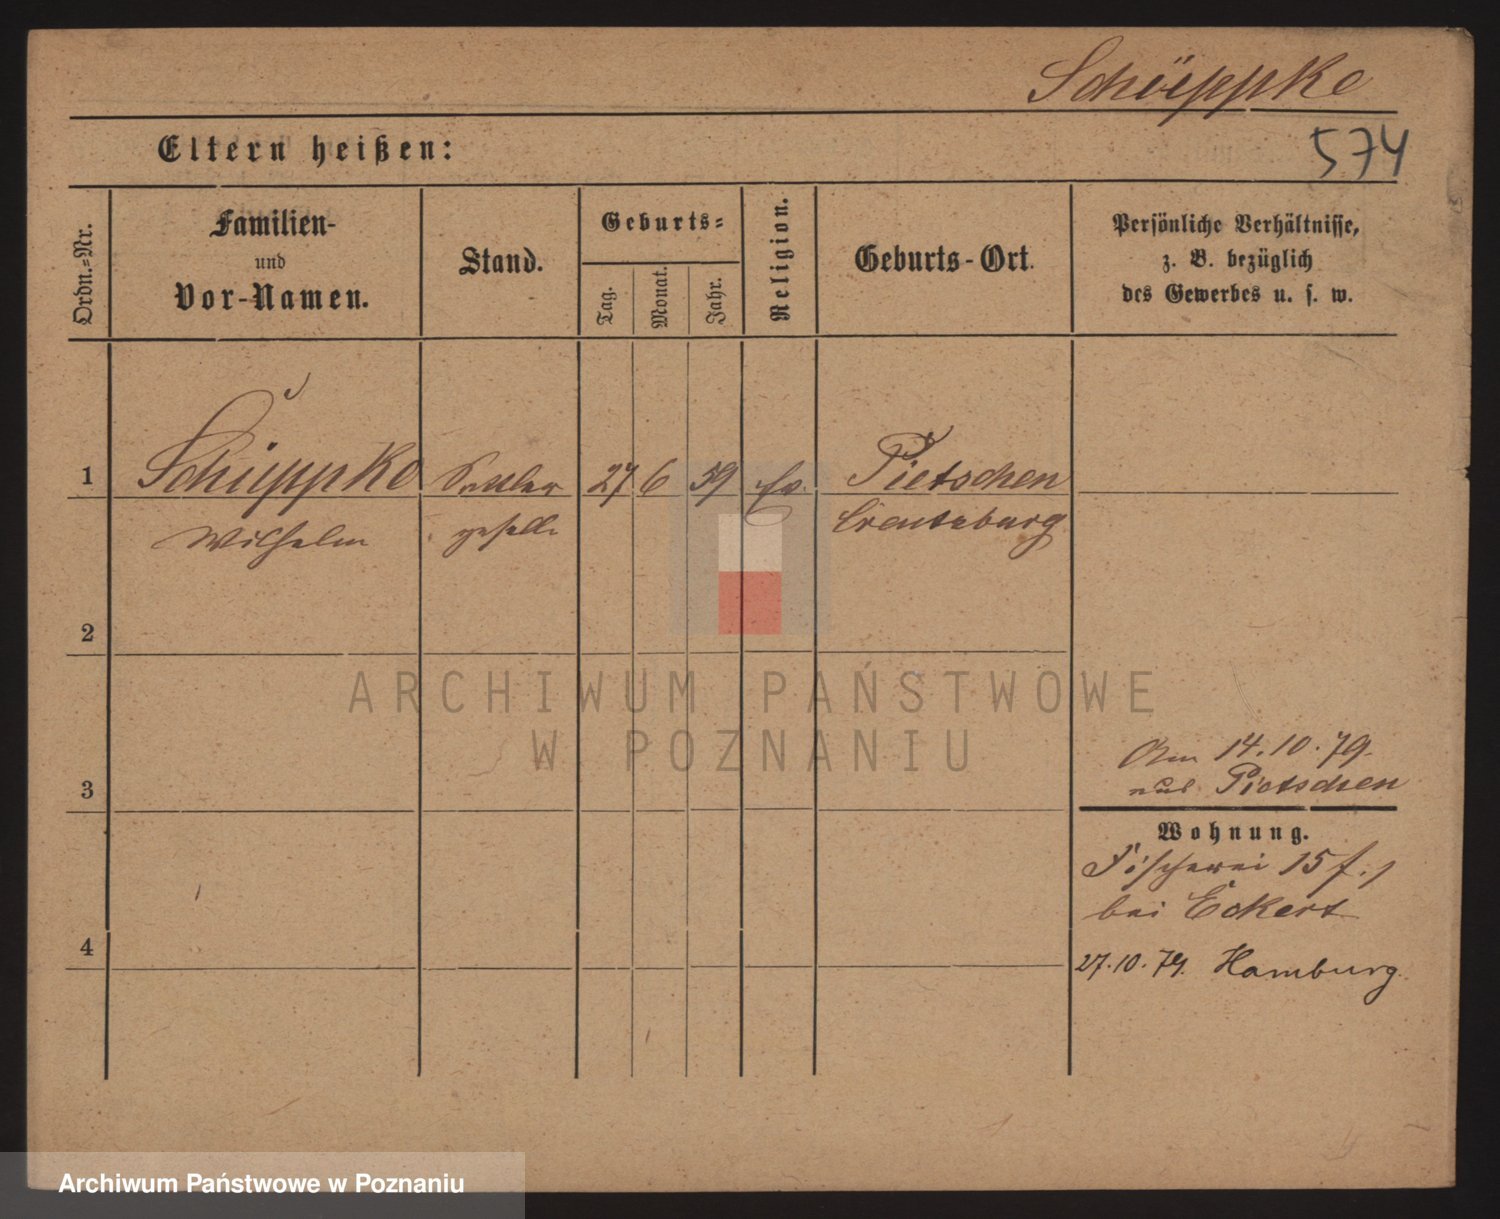 Schüppke
574
Eltern heißen:
Ordn.-Nr.
Familien-
und
Vor-Namen.
Stand.
Geburts-
Tag.
Monat.
Jahr.
Religion.
Geburts-Ort.
Persönliche Verhältnisse,
z. B. bezüglich
des Gewerbes u. s. w.
1
Schüppke
Wilhelm
Sattler
geselle
27
6
59
Ev.
Pietschen
Creutzburg
2
3
4
Am 14.10.79.
aus Pietschen
Wohnung.
Fischerei 15
bei Eckert
27.10.79. Hamburg.
ARCHIWUM PAŃSTWOWE
W POZNANIU
Archiwum Państwowe w Poznaniu